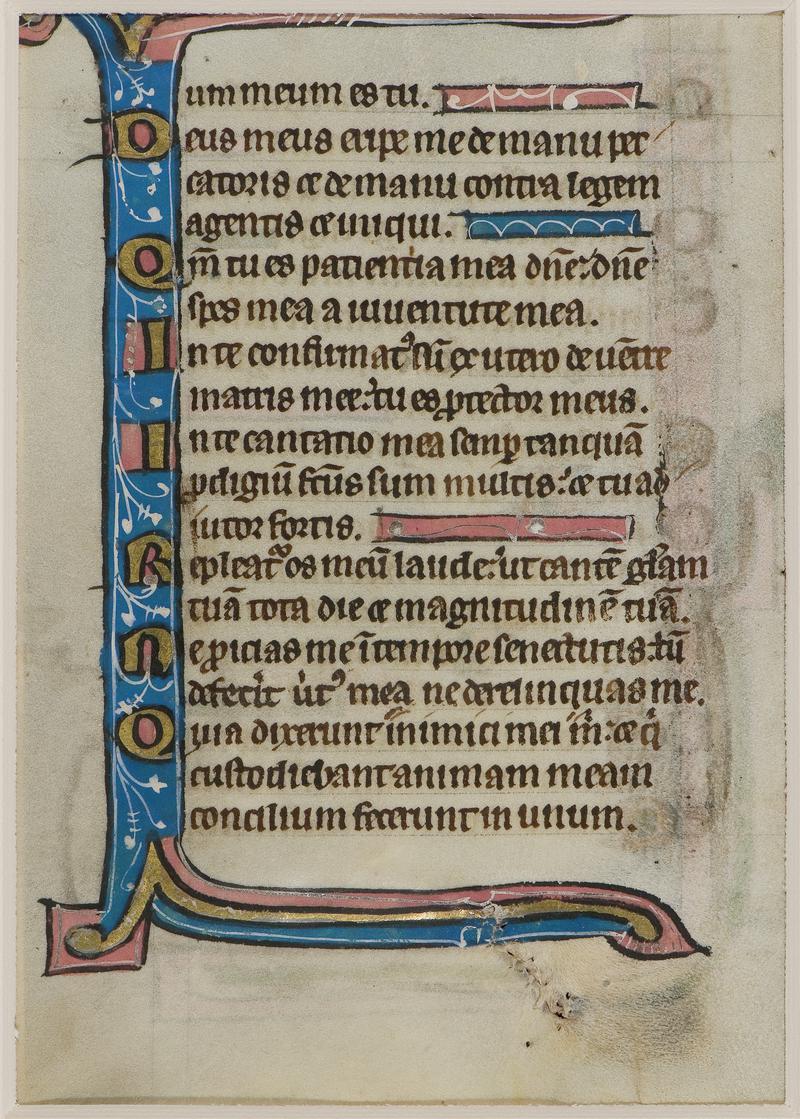 um meum es tu.
Deus meus eripe me de manu pec
catoris et de manu contra legem
agentis et iniqui.
Qm̄ tu es patientia mea dn̄e: dn̄e
spes mea a iuuentute mea.
In te confirmatꝰ sū ex utero de uētre
matris mee: tu es ꝓtector meus.
In te cantatio mea semꝑ tanquā
ꝓdigiū fc̄us sum multis: et tu ad
iutor fortis.
Repleat os meū laude: ut cantē glām
tuā tota die et magnitudinē tuā.
Ne ꝓicias me ī tempore senectutis: cū
defec̓it ū̓tꝰ mea ne derelinquas me.
Quia dixerunt inimici mei m̄: et q̄
custodiebant animam meam
concilium fecerunt in unum.